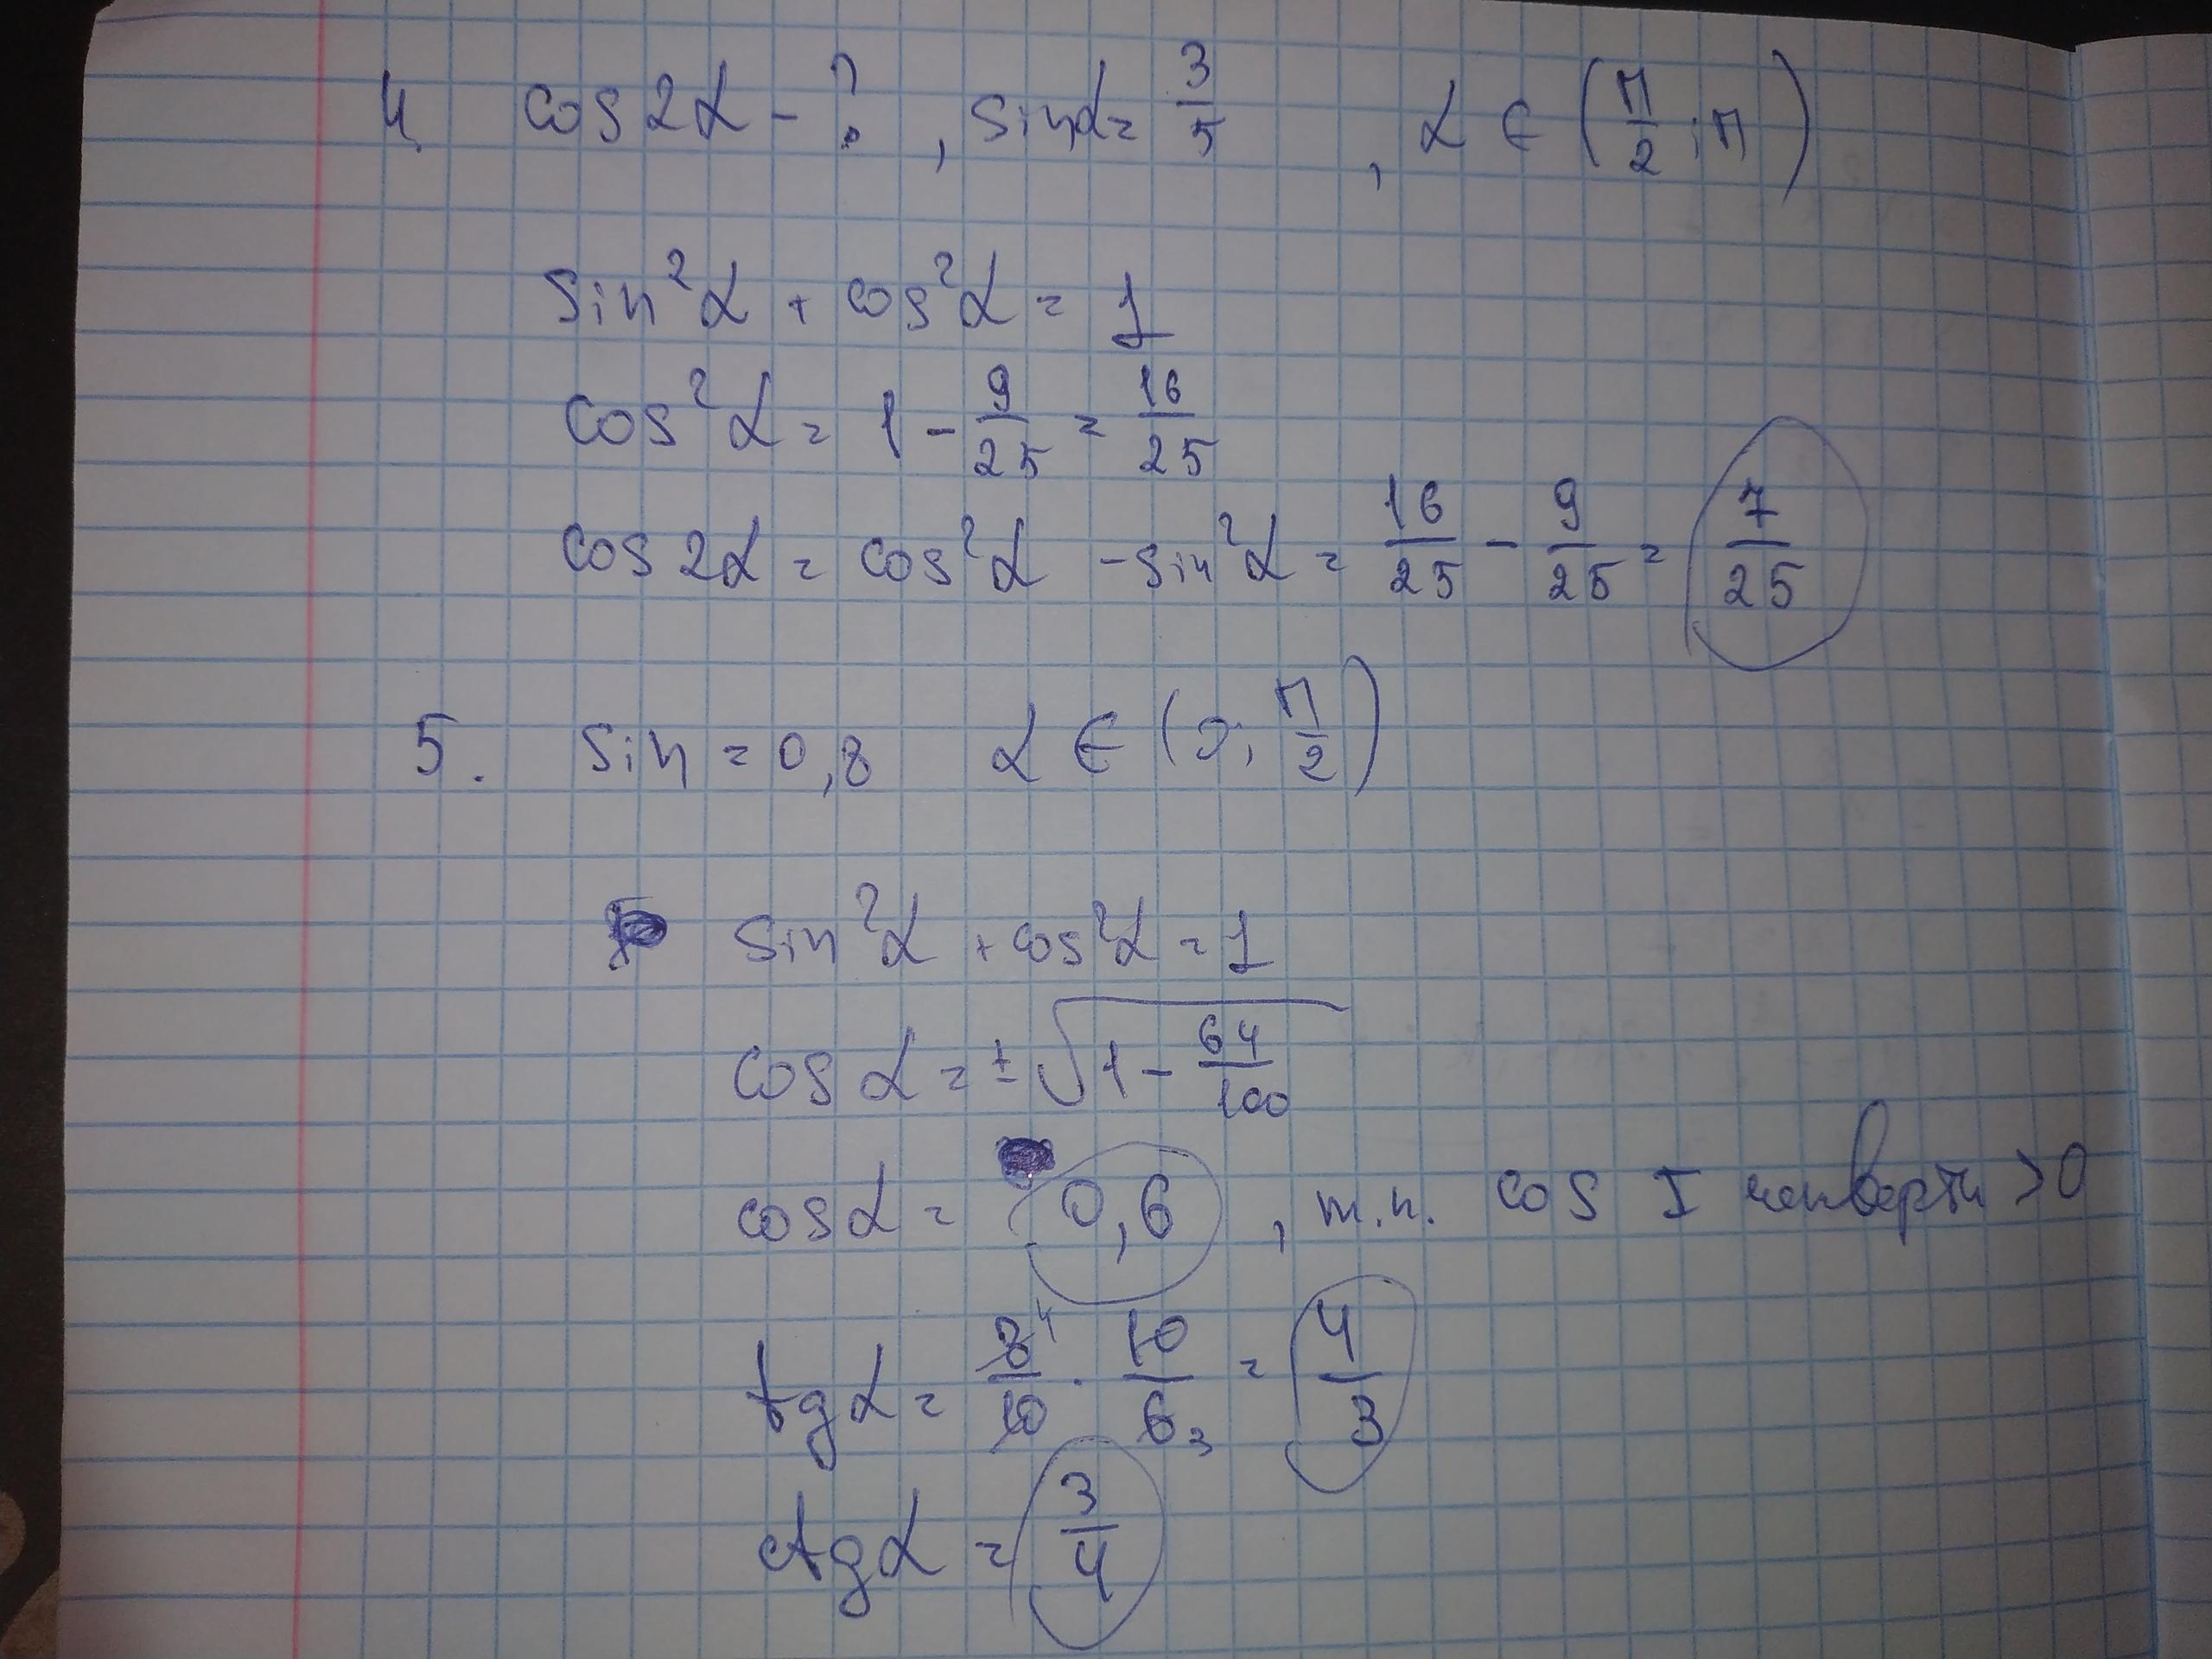 4. cos 2α - ?, sinα = 3/5, α ∈ (π/2; π)
sin²α + cos²α = 1
cos²α = 1 - 9/25 = 16/25
cos 2α = cos²α - sin²α = 16/25 - 9/25 = 7/25
5. sin = 0,8 α ∈ (0; π/2)
sin²α + cos²α = 1
cos α = ± √(1 - 64/100)
cos α = 0,6, т.к. cos I четверти > 0
tg α = 8 4/10 · 10/6 3 = 4/3
ctg α = 3/4